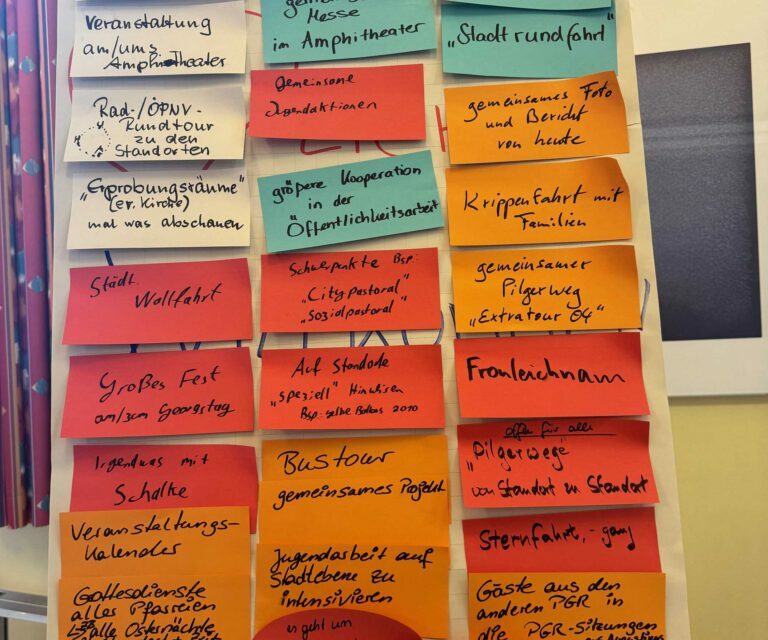 Veranstaltung
am/ums
Amphitheater
Rad-/ÖPNV-
Rundtour
zu den
Standorten
"Erprobungsräume"
(ev. Kirche)
mal was abschauen
Städt.
Wallfahrt
Großes Fest
am/zum Georgstag
Irgendwas mit
Schalke
Veranstaltungs-
Kalender
Gottesdienste
aller Pfarreien
alle Osternächte
Messe
im Amphitheater
Gemeinsame
Jugendaktionen
größere Kooperation
in der
Öffentlichkeitsarbeit
Schwerpunkte Bsp:
"Citypastoral"
"Sozialpastoral"
Auf Standorte
"speziell" Hinweisen
Bsp: gelbe Ballons 2010
Bustour
gemeinsames Projekt
Jugendarbeit auf
Stadtebene zu
intensivieren
es geht um
"Stadtrundfahrt"
gemeinsames Foto
und Bericht
von heute
Krippenfahrt mit
Familien
gemeinsamer
Pilgerweg
"Extratour 04"
Fronleichnam
offen für alle
"Pilgerwege"
von Standort zu Standort
Sternfahrt, -gang
Gäste aus den
anderen PGR in
die PGR-Sitzungen